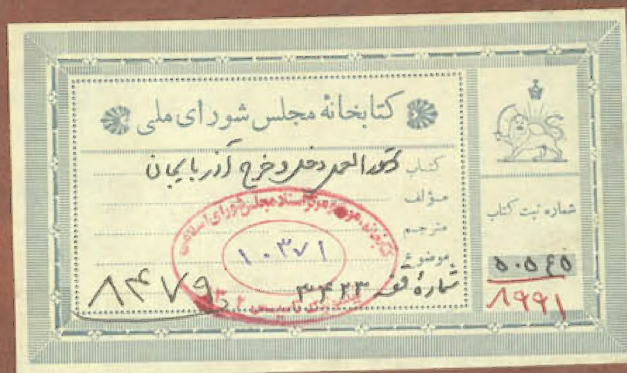 کتابخانهٔ مجلس شورای ملی
کتاب دستورالعمل دخل و خرج آذربایجان
مؤلف
مترجم
موضوع
شمارهٔ قفسه ۳۴۲۳
۸۴۷۹
کتابخانه، موزه و مرکز اسناد مجلس شورای اسلامی
۱۰۳۷۱
شماره ثبت کتاب
۵۰۵۴۵
۸۹۹۱